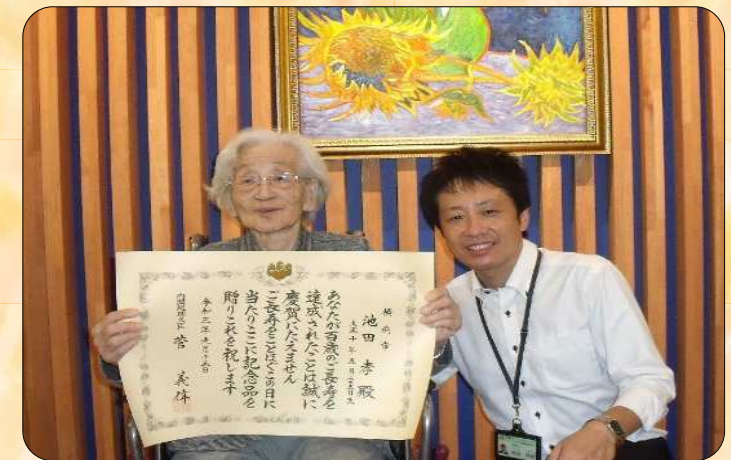 横浜市
池田 孝 殿
大正十年五月二十五日生
あなたが百歳のご長寿を
達成されたことは誠に
慶賀にたえません
ご長寿をことほぐこの日に
当たりここに記念品を
贈りこれを祝します
令和三年九月十五日
内閣総理大臣 菅 義偉